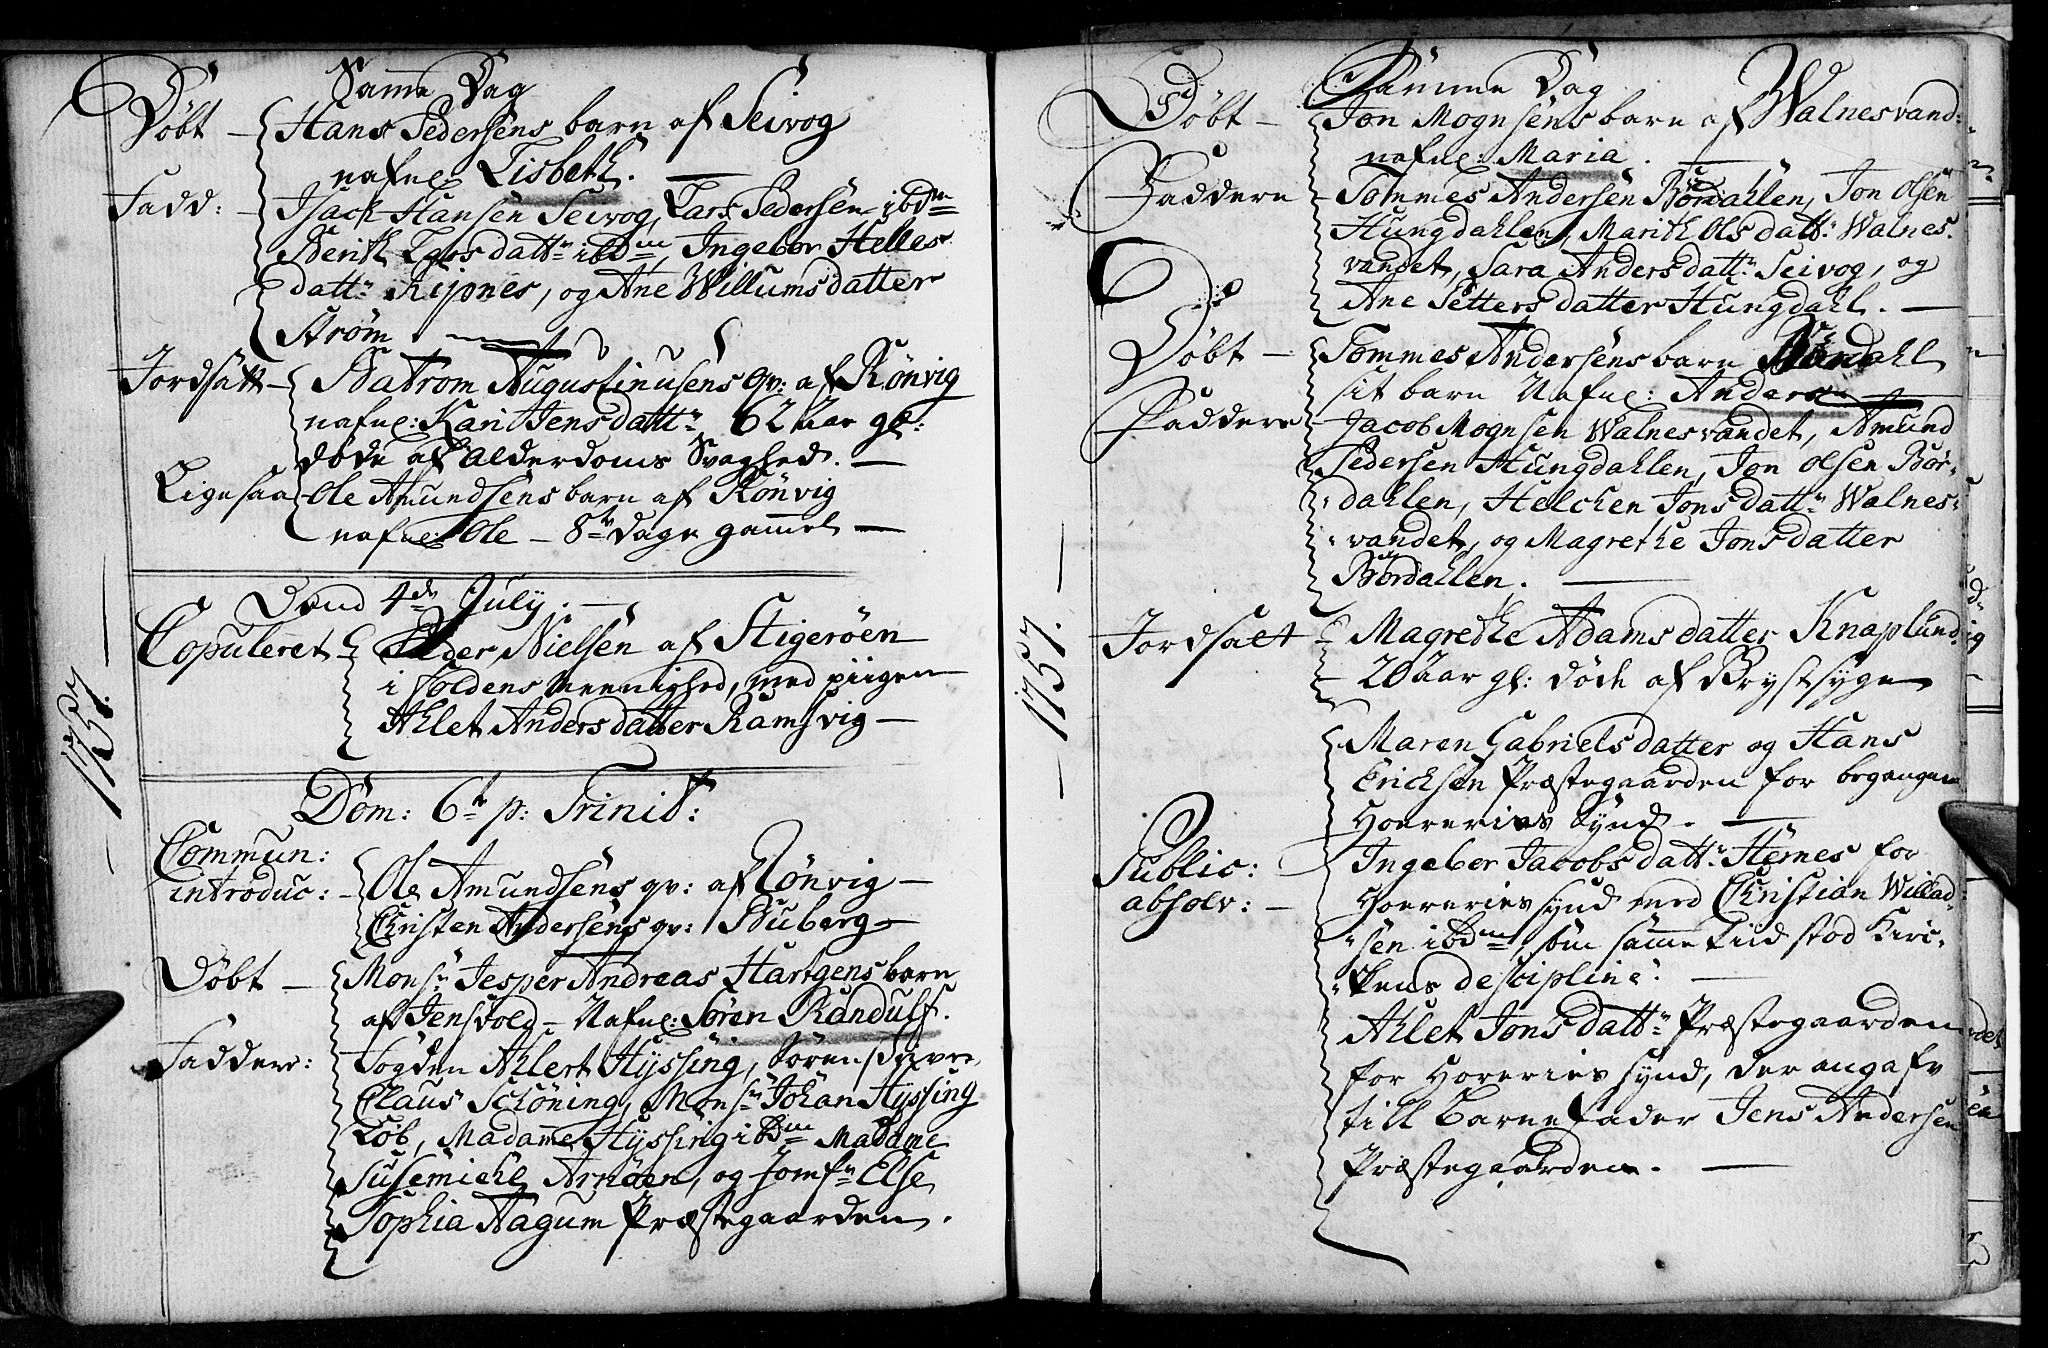 Samme Dag
Døbt – Hans Pedersens barn af Seivog
nafnl. Lisbeth. —
Fadd: – Isach Hansen Seivog, Lars Pedersen ibdm
Berith Lars datt. ibdm, Ingebor Helles
datt. Kipnes, og Ane Willumsdatter
Strøm. —
Jordsatt – Augustinusens qv: af Rönvig
nafnl: Kari Jens datt. 62 Aar gl:
døde af Alderdoms Svaghed. —
Ligesaa – Ole Amundsens barn af Rönvig
nafnl. Ole – 8te Dage gammel —
1757.
Dend 4de July. —
Copuleret – Peder Nielsen af Stigerøen
i Foldens Meenighed, med piigen
Ahlet Andersdatter Ramsvig —
Dom: 6te p: Trinit:
Commun:
introduc: – Ole Amundsens qv: af Rönvig —
Christen Andersens qv: Stuberg —
Døbt – Monsr Jesper Andreas Hartgens barn
af Jensvold – Nafnl: Søren Randulf.
Faddere: Fogden Ahlert Hyssing, Søren
Claus Schöning, Monsr Johan Hyssing
Løb, Madame Hyssing ibdm Madame
Susemiehl Arnöen, og Jomfr Else
Sophia Aagum Præstegaarden.
– 1757. –
Samme Dag
Døbt – Jon Mognsens barn af Walnesvand:
nafnl: Maria. —
Faddere – Tommes Andersen Bördahlen, Jon Olsen
Hungdahlen, Marith Ols datt. Walnes-
vandet, Sara Anders datt. Seivog, og
Ane Petters datter Hungdahl. —
Døbt – Tommes Andersens barn Bördahl
sit barn Nafnl: Anders —
Faddere – Jacob Mognsen Walnesvandet, Amund
Pedersen Hungdahlen, Jon Olsen Bör-
dahlen, Helchen Jons datt. Walnes-
vandet, og Magrethe Jonsdatter
Bördahlen. —
Jordsatt – Magrethe Adamsdatter Knaplund.
– 20 Aar gl: døde af Brystsyge
Maren Gabrielsdatter og Hans
Ericksen Præstegaarden for begangen
Horeries Synd. —
Public: Ingeber Jacobs datt. Hernes for
absolv: – Horeries synd med Christian Willad-
sen ibdm, som samme tiid stod Kirc-
kens desipline. —
Ahlet Jons datt. Præstegaarden
for Horeries synd, der angafv
till Barnefader Jens Andersen
Præstegaarden. —